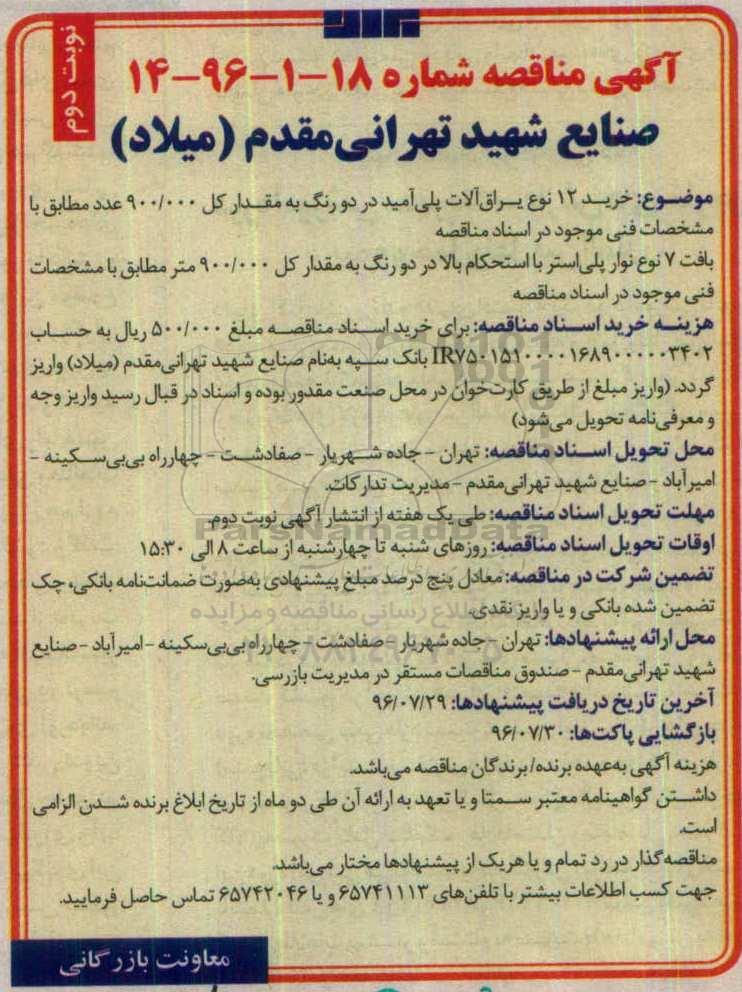 نوبت دوم
آگهی مناقصه شماره ۱۸-۱-۹۶-۱۴
صنایع شهید تهرانی‌مقدم (میلاد)
موضوع: خرید ۱۲ نوع یراق‌آلات پلی‌آمید در دو رنگ به مقدار کل ۹۰۰/۰۰۰ عدد مطابق با
مشخصات فنی موجود در اسناد مناقصه
بافت ۷ نوع نوار پلی‌استر با استحکام بالا در دو رنگ به مقدار کل ۹۰۰/۰۰۰ متر مطابق با مشخصات
فنی موجود در اسناد مناقصه
هزینه خرید اسناد مناقصه: برای خرید اسناد مناقصه مبلغ ۵۰۰/۰۰۰ ریال به حساب
IR۷۵۰۱۵۱۰۰۰۰۱۶۸۹۰۰۰۰۰۰۳۴۰۲ بانک سپه به‌نام صنایع شهید تهرانی‌مقدم (میلاد) واریز
گردد. (واریز مبلغ از طریق کارت‌خوان در محل صنعت مقدور بوده و اسناد در قبال رسید واریز وجه
و معرفی‌نامه تحویل می‌شود)
محل تحویل اسناد مناقصه: تهران - جاده شهریار - صفادشت - چهارراه بی‌بی‌سکینه -
امیرآباد - صنایع شهید تهرانی‌مقدم - مدیریت تدارکات.
مهلت تحویل اسناد مناقصه: طی یک هفته از انتشار آگهی نوبت دوم.
اوقات تحویل اسناد مناقصه: روزهای شنبه تا چهارشنبه از ساعت ۸ الی ۱۵:۳۰
تضمین شرکت در مناقصه: معادل پنج درصد مبلغ پیشنهادی به‌صورت ضمانت‌نامه بانکی، چک
تضمین شده بانکی و یا واریز نقدی.
محل ارائه پیشنهادها: تهران - جاده شهریار - صفادشت - چهارراه بی‌بی‌سکینه - امیرآباد - صنایع
شهید تهرانی‌مقدم - صندوق مناقصات مستقر در مدیریت بازرسی.
آخرین تاریخ دریافت پیشنهادها: ۹۶/۰۷/۲۹
بازگشایی پاکت‌ها: ۹۶/۰۷/۳۰
هزینه آگهی به‌عهده برنده/ برندگان مناقصه می‌باشد.
داشتن گواهینامه معتبر سمتا و یا تعهد به ارائه آن طی دو ماه از تاریخ ابلاغ برنده شدن الزامی
است.
مناقصه‌گذار در رد تمام و یا هریک از پیشنهادها مختار می‌باشد.
جهت کسب اطلاعات بیشتر با تلفن‌های ۶۵۷۴۱۱۱۳ و یا ۶۵۷۴۲۰۴۶ تماس حاصل فرمایید.
معاونت بازرگانی
ParsNamadData